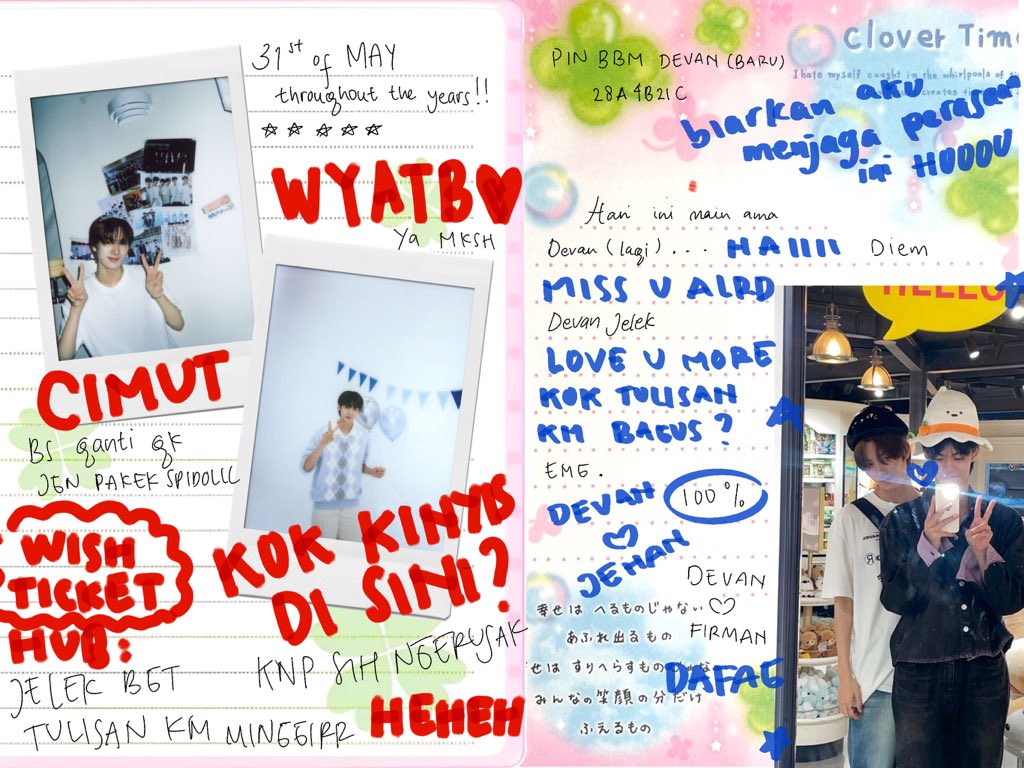 31st of MAY
throughout the years!!
☆☆☆☆☆
WYATB♥
Ya MKSH
CIMUT
BS ganti gk
JGN PAKEK SPIDOLLL
WISH
TICKET
HUB:
KOK KINYIS
DI SINI?
JELEK BGT
TULISAN KM
KNP SIH NGERUSAK
MINGGIRR
HEHEH
Clover Time
I hate myself caught in the whirlpools of
creates
PIN BBM DEVAN (BARU)
28A4B21C
biarkan aku
menjaga perasaan
ini HUUUU
Hari ini main ama
Devan (lagi)...
HAIIII
Diem
MISS U ALRD
Devan Jelek
LOVE U MORE
KOK TULISAN
KM BAGUS?
EME.
DEVAN
100%
♡
JEHAN
DEVAN
♡
FIRMAN
幸せは へるものじゃない
あふれ出るもの
せは すりへらすものじゃな
みんなの笑顔の分だけ
ふえるもの
DAFAG
HELLO